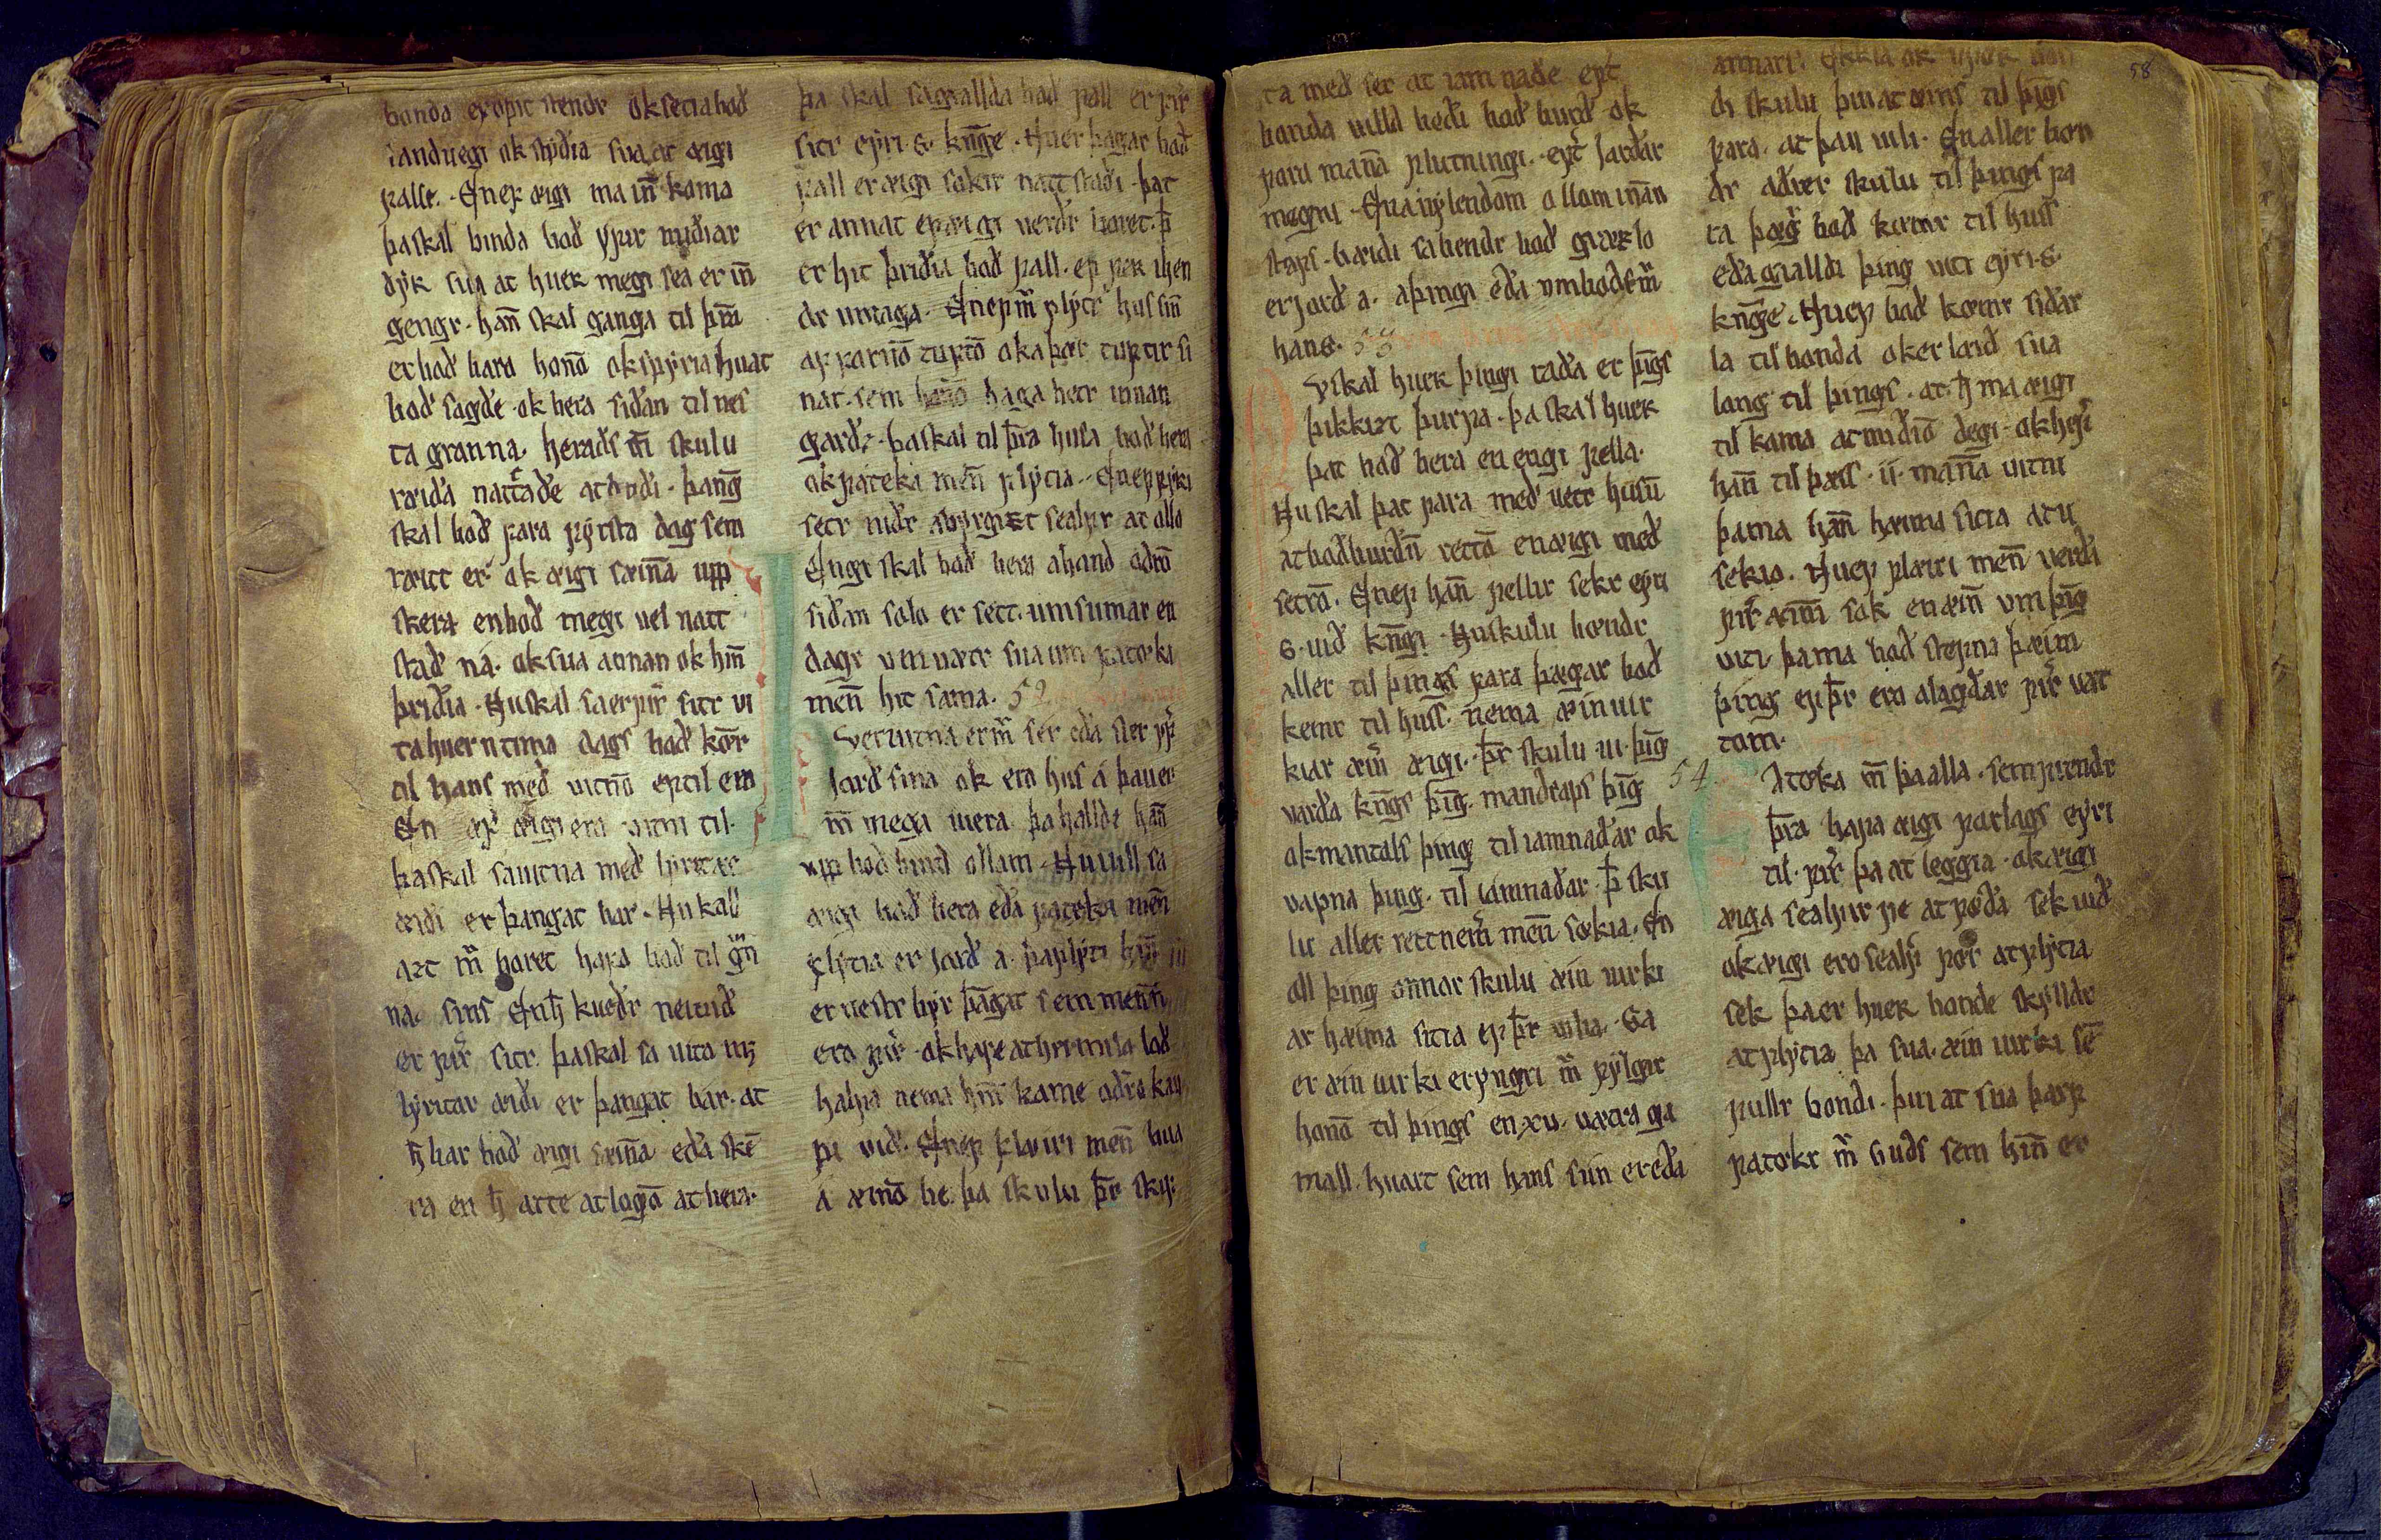 bonda ef opit stendr ok setia bod
i anduegi ok stydia sua at æigi
falle. En ef æigi ma in̅ koma
þa skal binda bod yfuir midiar
dyr sua at huer megi sea er in̅
gengr. han̅ skal ganga til þæira
er bod baru hanō ok spyria huat
bod sagde ok bera sidan til nes
ta granna. herads m̅ skulu
ræida nattade at bodi. þang̅
skal bod fara fyrsta dag sem
rætt er ok æigi sæin̅a upp
skera en bod megi uel natt
stad na. ok sua annan ok hin̅
þridia. Nu skal sa er fir̅ sitr ui
ta huern tima dags bod kōr
til hans med uitnō ef til ero
En ef æigi ero uitni til.
þa skal sa uitna med lyrittar
æidi er þangat bar. Nu kall
azt m̅ boret hafa bod til g̅n
na sins En h̅ kuedr nei uid
er fir̅ sitr. þa skal sa uita mz
lyritar æidi er þangat bar. at
h̅ bar bod æigi sæin̅a eda ske̅
ra en h̅ atte at logō at bera.
þa skal sa giallda bod fall er fir̅
sitr eyri .s. kn̅ge. Huer þagar bod
fall er æigi sakir natt stadi. þat
er annat ef æigi uerdr boret. þ̅
er hit þridia bod fall. ef fek̅ i hen
dr umaga. En ef m̅ flytr hus sin̅
af fornō tuptō ok a þær tuptir si
nar. sem haga betr innan
gardz. þa skal til þæira husa bod bera
ok fateka men̅ flytia. En ef fyri
setr nidr abyrgizt sealfir at ollo
Engi skal bod bera a hand odrō
sidan solo er sett. um sumar en
dagr um uætr sua um fatøki
men̅ hit sama. 52
Vetuitna er m̅ ser eda sler fyr̅
Jord sina ok ero hus a þau er
m̅ mega uera. þa hallde han̅
upp bod burd ollom. Nu uill sa
æigi bod bera eda fatøka men̅
flytia er Jord a. þa flyti hin̅
er nestr byr þāgat sem men̅n
ero fir̅. ok hafe at hrimula lod
halfua nema hin̅ kome odrō kau
pi uid. En ef flæiri men̅ bua
a æinō bø. þa skulu þæir skif
ta med ser at iamnade eft̅
bonda uilld bedi bod burd ok
faru man̅a flutningi. eft̅ Jardar
megni. En a uplendom ollom inān
stafs. bæidi sa hendr bod giæzlo
er Jord a. a þingi eda umbods m̅
hans. 53
Vskal huer þingi rada er þīgs
þikkizt þurfa. þa skal huer
þat bod bera en engi fella.
Nu skal þat fara med uetr husū
at bodburdū rettō en æigi med
setrō. En ef han̅ fellir sekr eyri
.s. uid kn̅gi. Nu skulu bøndr
aller til þings fara þegar bod
kemr til huss. nema æin uir
kiar æin̅ æigi. þ̅r skulu .iii. þīg
uarda kn̅gs þīg. mandraps þīg
ok mantals þing til iamnadar ok
uapna þing. til iamnadar. þ̅ sku
lu aller rettnem̅ men̅ søkia. En
oll þing onnor skulu æin uirki
ar hæima sitia ef þ̅r uilia. Sa
er æin uirki er yngri m̅ fylgir
hanō til þings en .xv. uætra ga
mall. huart sem hans sun er eda
annarr. Ekkia ok
di skulu þui at æins til þīgs
fara. at þau uili. En aller bøn
dr adrer skulu til þings fa
ra þæg̅ bod kømr til huss
eda gialldi þing uiti eyri .s.
kn̅ge. Nu ef bod kømr sidar
la til bonda ok er læid sua
long til þings. at h̅ ma æigi
til koma at midiō degi. ok hefir
han̅ til þæss .ii. man̅a uitni
þa ma han̅ hæima sitia at u
sekio. Nu ef flæiri men̅ uerda
fir̅ æinni sok en æin̅ um þīg
uiti. þa ma bod stefna þæim
þing ef þ̅r ero alagdar fir̅ uat
tom.
54 Atøka m̅ þa alla. sem frendr
þ̅ra hafa æigi farlags eyri
til. fir̅ þa at leggia. ok æigi
æiga sealfir fe at føda sek uid
ok æigi ero sealf̅ før̅ at flytia
sek þa er huer bonde skylldr
at flytia. þa sua æin uirki se̅
fullr bondi. þui at sua þarf
fatøkr m̅ guds sem hin̅ er
58